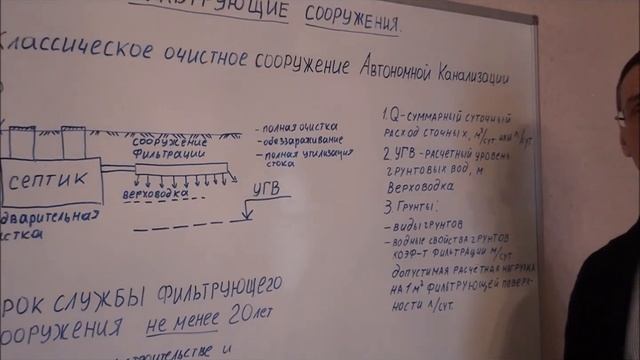 СООРУЖЕНИЯ.
Классическое очистное сооружение Автономной Канализации
сооружение
фильтрации
- полная очистка
- обеззараживание
- полная утилизация
стока
септик
верховодка
УГВ
1. Q - суммарный суточный
расход сточных, м³/сут. или л/сут.
2. УГВ - расчетный уровень
грунтовых вод, м
Верховодка
3. Грунты:
- виды грунтов
- водные свойства грунтов
коэф-т фильтрации м/сут.
допустимая расчетная нагрузка
на 1 м² фильтрующей поверх-
ности л/сут.
службы фильтрующего
не менее 20 лет